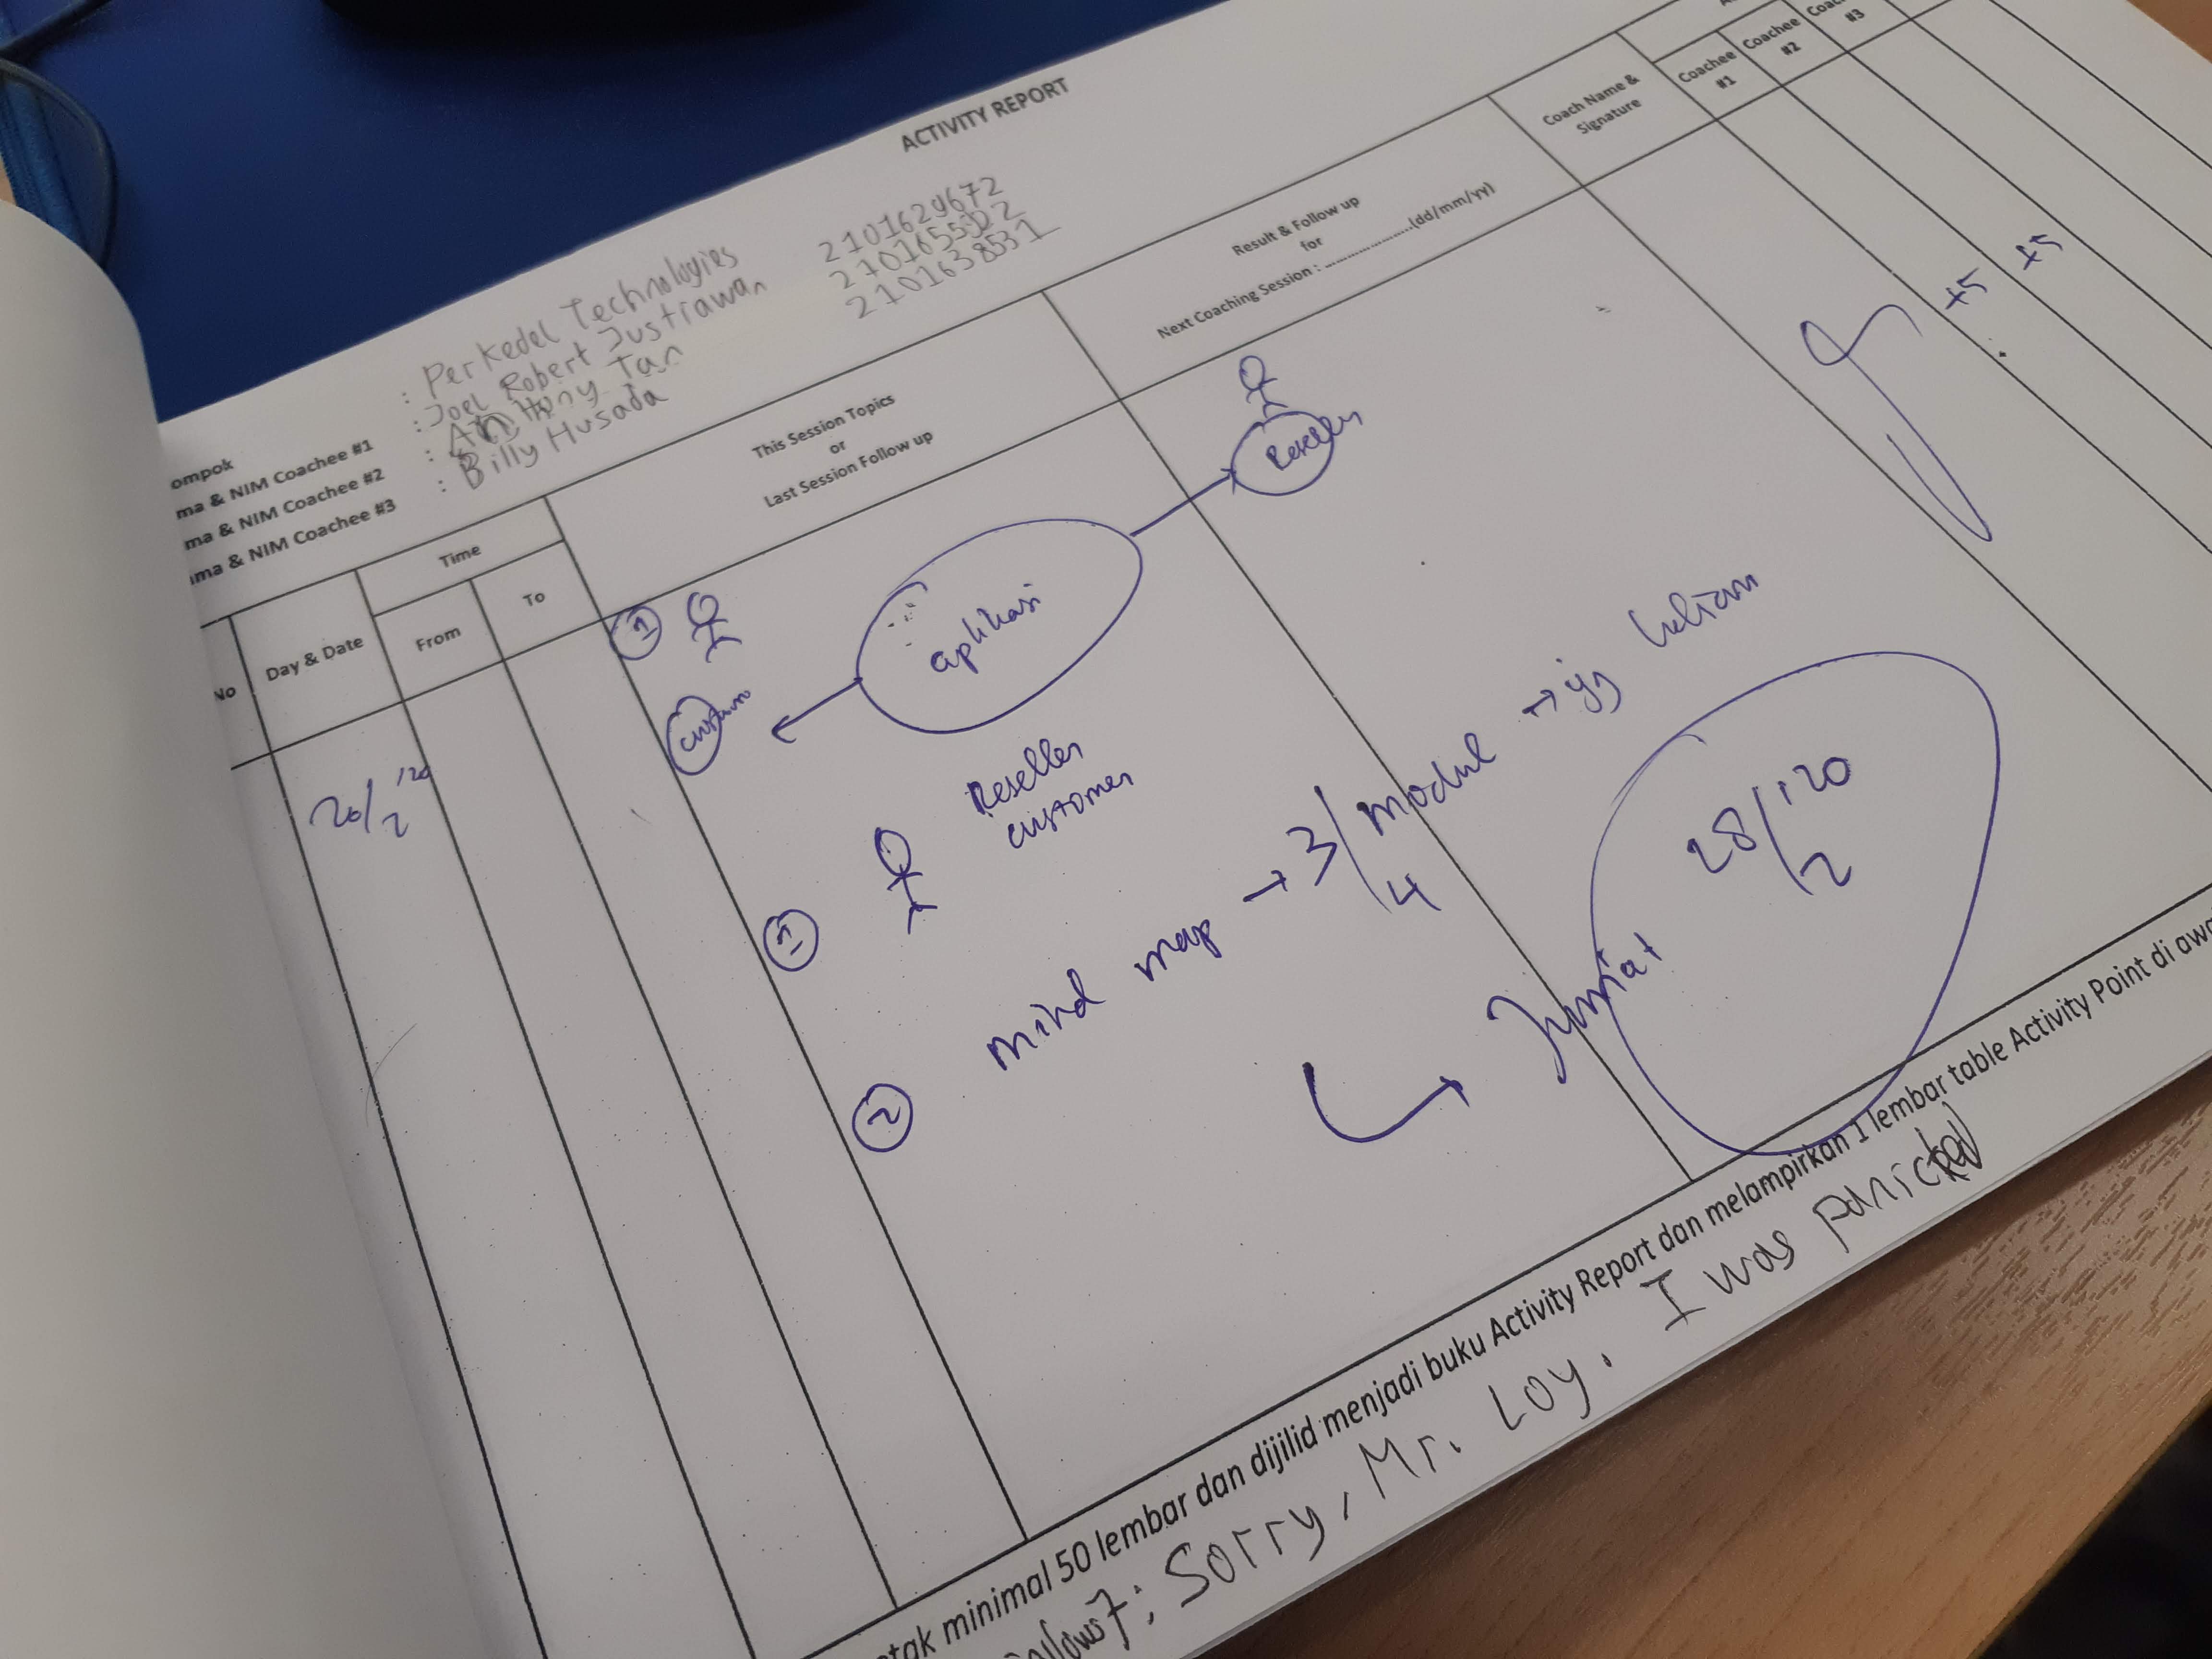 ACTIVITY REPORT
ompok : Perkedel Technologies
ma & NIM Coachee #1 : Joel Robert Justiawan 2101629672
ma & NIM Coachee #2 : Anthony Tan
ma & NIM Coachee #3 : Billy Husada 2101638531
No
Day & Date
Time
From
To
This Session Topics
or
Last Session Follow up
Result & Follow up
for
Next Coaching Session : ....................(dd/mm/yy)
Coach Name &
Signature
Coachee
#1
Coachee
#2
#3
20/2 '20
1
aplikasi
Reseller
Reseller
customer
1
2 mind map → 3/4 modul →
→ Jumiat
28/2 '20
+5 +5
etak minimal 50 lembar dan dijilid menjadi buku Activity Report dan melampirkan 1 lembar table Activity Point di awa
: Sorry, Mr. Loy. I was panicked